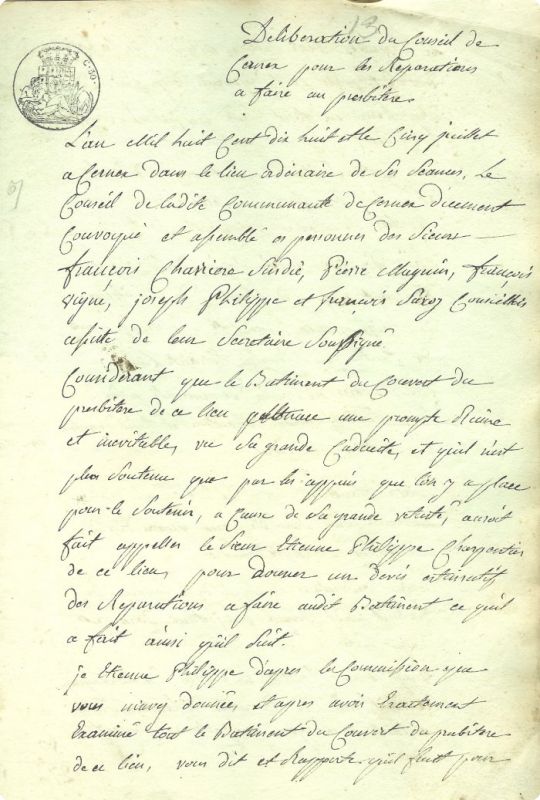 13
Déliberation du Conseil de
Cernex pour les Reparations
a faire au presbitere
C. 30.
L'an Mil huit Cent dix huit et le Cinq juillet
a Cernex dans le lieu ordinaire de Ses Seances, Le
Conseil de ladite Communauté de Cernex düement
Convoqué et assemblé es personnes des Sieurs
françois Charriere Sindic, Pierre Magnin, françois
vigne, joseph Philippe et françois Savoy Conseillers
assisté de leur Secretaire Soussigné.
Considerant que le Batiment du Couvert du
presbitere de ce lieu une prompte Ruine
et inevitable, vu Sa grande Caducité, et qu'il n'est
plus Soutenu que par les appuis que l'on y a placé
pour le Soutenir, a Cause de Sa grande vetusté, auroit
fait appeller le Sieur Etienne Philippe Charpentier
de ce lieu, pour donner un devis estimatif
des Reparations a faire audit Batiment ce qu'il
a fait ainsi qu'il Suit.
je Etienne Philippe d'apres la Commission que
vous m'avez donnée, et apres avoir Exactement
Examiné tout le Batiment du Couvert du presbitere
de ce lieu, vous dit et Rapporte qu'il faut pour